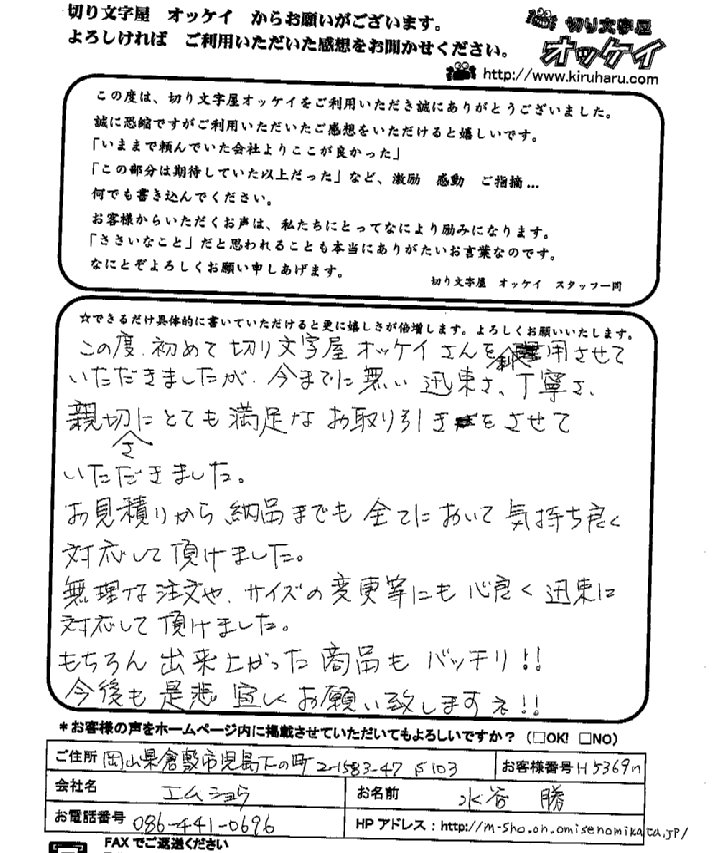 切り文字屋　オッケイ　からお願いがございます。
よろしければ　ご利用いただいた感想をお聞かせください。
切り文字屋
オッケイ
http://www.kiruharu.com
この度は、切り文字屋オッケイをご利用いただき誠にありがとうございました。
誠に恐縮ですがご利用いただいたご感想をいただけると嬉しいです。
「いままで頼んでいた会社よりここが良かった」
「この部分は期待していた以上だった」など、激励　感動　ご指摘…
何でも書き込んでください。
お客様からいただくお声は、私たちにとってなにより励みになります。
「ささいなこと」だと思われることも本当にありがたいお言葉なのです。
なにとぞよろしくお願い申しあげます。
切り文字屋　オッケイ　スタッフ一同
☆できるだけ具体的に書いていただけると更に嬉しさが倍増します。よろしくお願いいたします。
この度、初めて切り文字屋オッケイさんを用させて
いただきましたが、今までに無い迅速さ、丁寧さ、
親切さにとても満足なお取り引きをさせて
いただきました。
お見積りから納品までも全てにおいて気持ち良く
対応して頂けました。
無理な注文や、サイズの変更等にも心良く迅速に
対応して頂けました。
もちろん出来上がった商品もバッチリ!!
今後も是非宜しくお願い致しますネ!!
＊お客様の声をホームページ内に掲載させていただいてもよろしいですか？（□OK! □NO）
ご住所 岡山県倉敷市児島下の町2-1583-47 お客様番号 H5369
会社名 エムショウ お名前 水谷 勝
お電話番号 086-441-0696 HPアドレス：http://m-sho.oh.omisenomikata.jp/
FAXでご返送ください